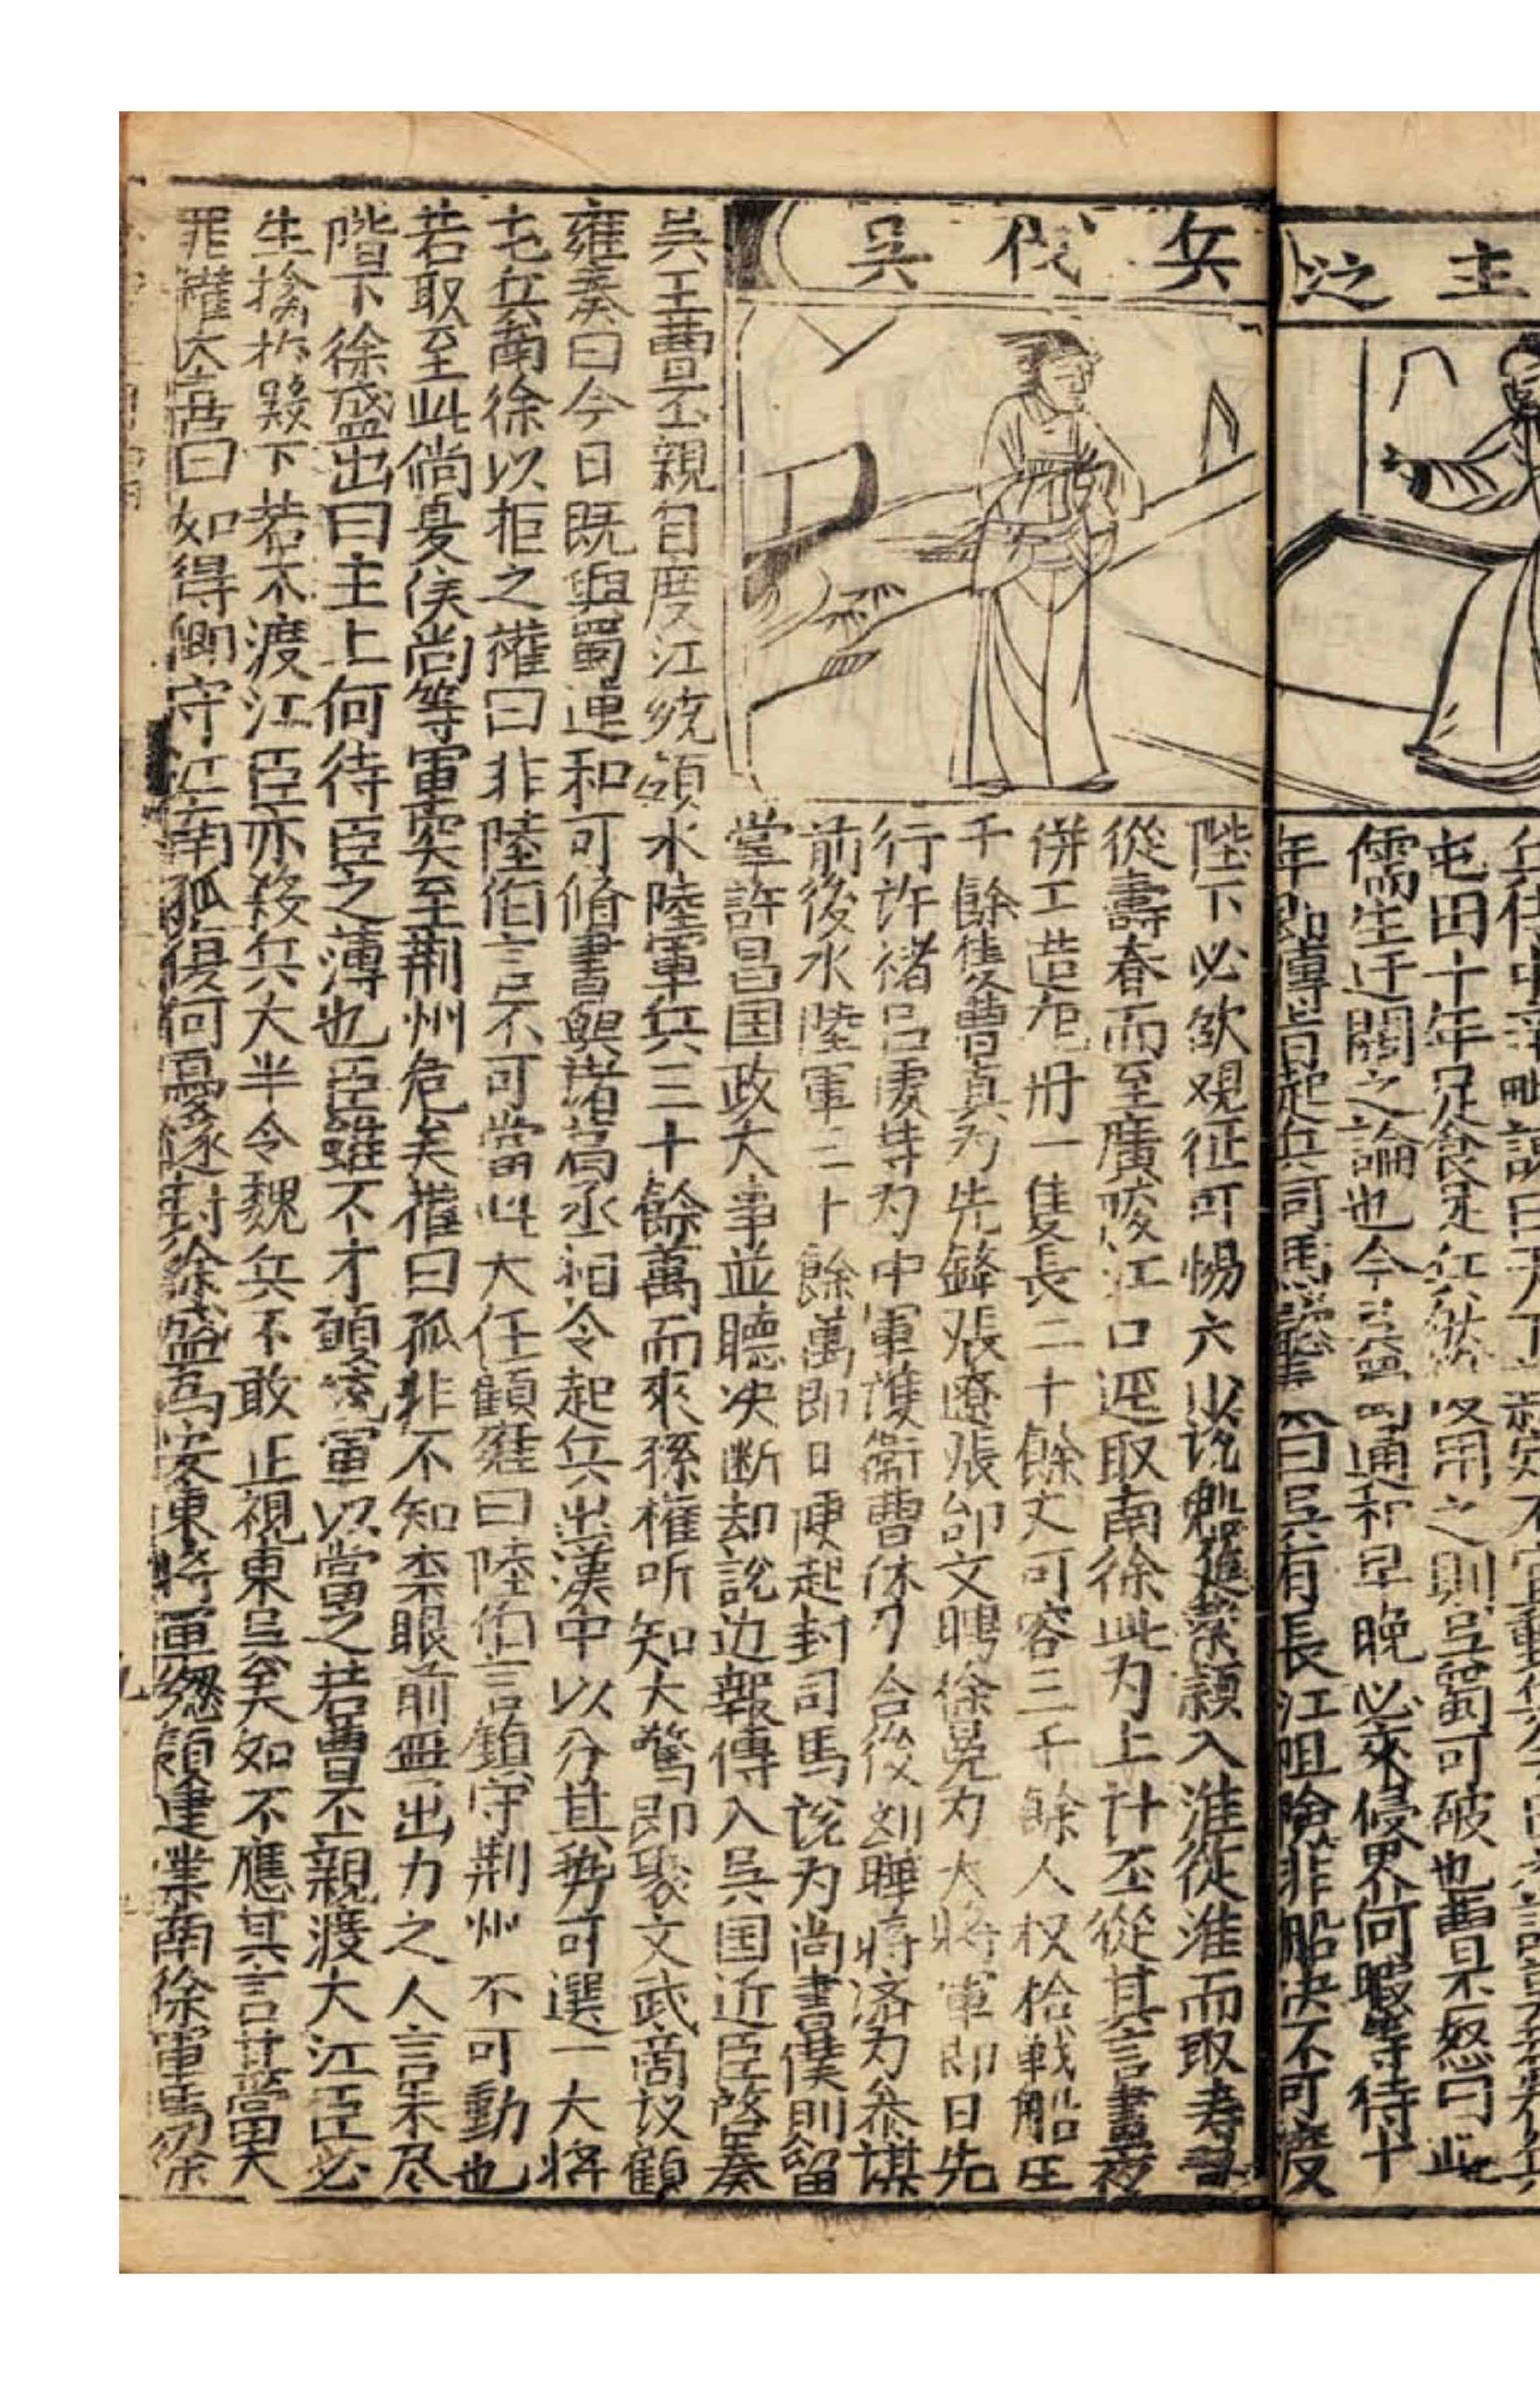 主之
兵伐吳
屯田十年足食足兵然後用之則吳蜀可破也曹丕怒曰此
儒生迂闊之論也今吳蜀通和早晚必來侵界何暇等待十
年即傳旨起兵司馬懿曰吳有長江阻險非船決不可渡
陛下必欲親征可
入淮從淮而取壽
從壽春而至廣陵江口逕取南徐此为上計丕從其言晝夜
併工造
舟一隻長二十餘丈可容三千餘人权拾戰船
千餘隻曹真为先鋒張遼張郃文聘徐晃为大將軍即日先
行許褚呂虔
为中軍護衛曹休为合後刘曄蔣濟为叅謀
前後水陸軍三十餘萬即日便起封司馬
为尚書僕則留
掌許昌国政大事並聽决断却說边報傳入吳国近臣啓奏
吳王曹丕親自度江統領水陸軍兵三十餘萬而來孫權听知大驚即聚文武商议顧
雍奏曰今日既與蜀連和可修書與諸葛丞相令起兵出漢中以分其勢可選一大將
屯兵南徐以拒之權曰非陸伯言不可當此大任顧雍曰陸伯言鎮守荆州不可動也
若取至此倘夏侯尚等軍突至荆州危矣權曰孤非不知柰眼前無出力之人言未尽
階下徐盛出曰主上何待臣之薄也臣雖不才願
軍以當之若曹丕親渡大江臣必
生擒
殿下若不渡江臣亦殺兵大半令魏兵不敢正視東吳矣如不應其言甘當
罪權大喜曰如得卿守江南孤復何憂遂封徐盛爲安東將軍總領建業南徐軍馬徐